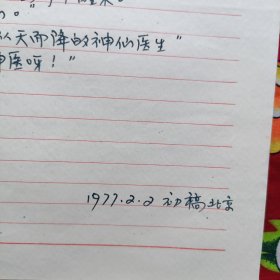 。"
从天而降的神仙医生"
神医呀！"
1977.2.2 初稿北京